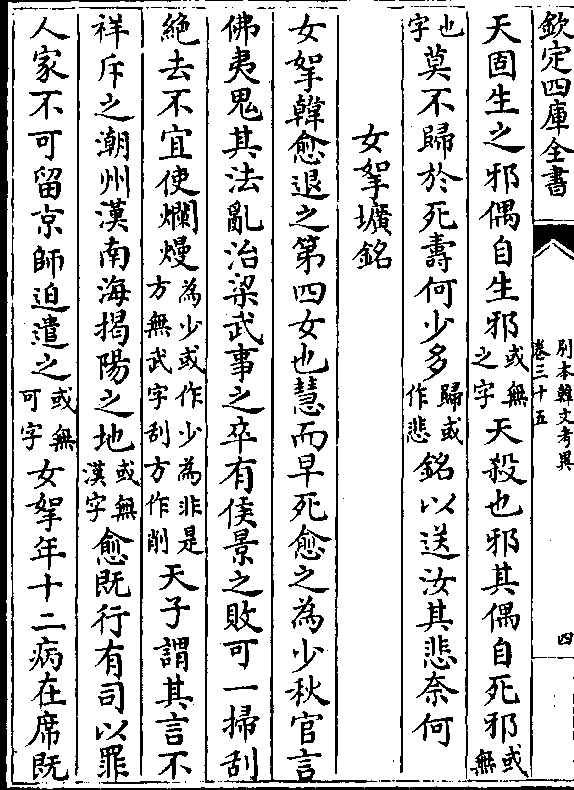 欽定四庫全書
別本韓文考異
卷三十五
四
天固生之邪偶自生邪或無之字天殺也邪其偶自死邪或無
也字莫不歸於死壽何少多歸或作悲銘以送汝其悲奈何
女挐壙銘
女挐韓愈退之第四女也慧而早死愈之為少秋官言
佛夷鬼其法亂治梁武事之卒有侯景之敗可一掃刮
絶去不宜使爛熳為少或作少為非是方無武字刮方作削天子謂其言不
祥斥之潮州漢南海揭陽之地或無漢字愈既行有司以罪
人家不可留京師迫遣之或無可字女挐年十二病在席既